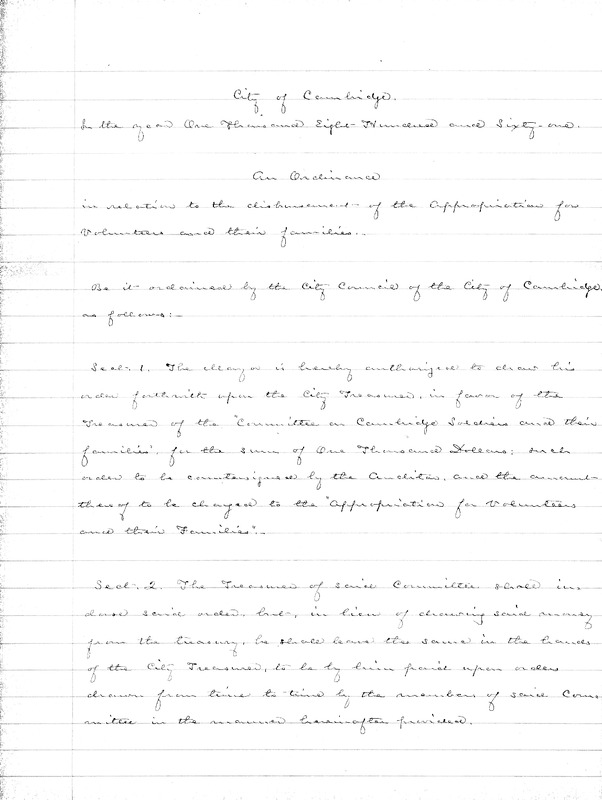 City of Cambridge.
In the year One Thousand Eight Hundred and Sixty-one.
An Ordinance
in relation to the disbursement of the Appropriation for
Volunteers and their families.
Be it ordained by the City Council of the City of Cambridge,
as follows:-
Sect. 1. The Mayor is hereby authorized to draw his
order forthwith upon the City Treasurer, in favor of the
Treasurer of the "Committee on Cambridge Soldiers and their
families", for the sum of One Thousand Dollars; such
order to be countersigned by the Auditor, and the amount
thereof to be charged to the "Appropriation for Volunteers
and their Families".-
Sect. 2. The Treasurer of said Committee shall in-
dorse said order, but, in lieu of drawing said money
from the treasury, he shall leave the same in the hands
of the City Treasurer, to be by him paid upon orders
drawn from time to time by the members of said Com-
mittee in the manner hereinafter provided.